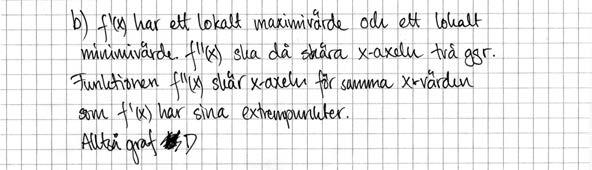 b) f'(x) har ett lokalt maximivärde och ett lokalt
minimivärde. f''(x) ska då skära x-axeln två ggr.
Funktionen f''(x) skär x-axeln för samma x-värden
som f'(x) har sina extrempunkter.
Alltså graf D